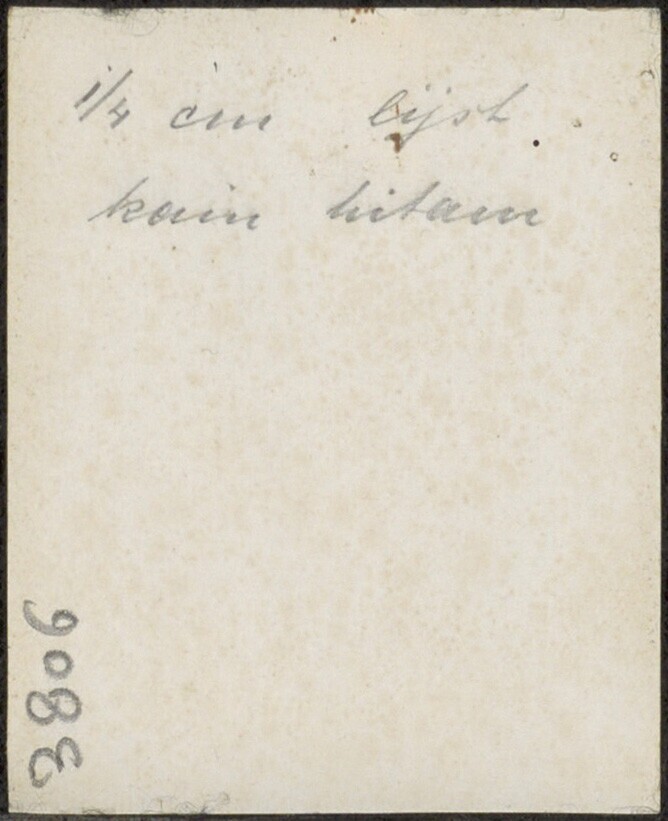 1/4 cm lijst
kain hitam
3806